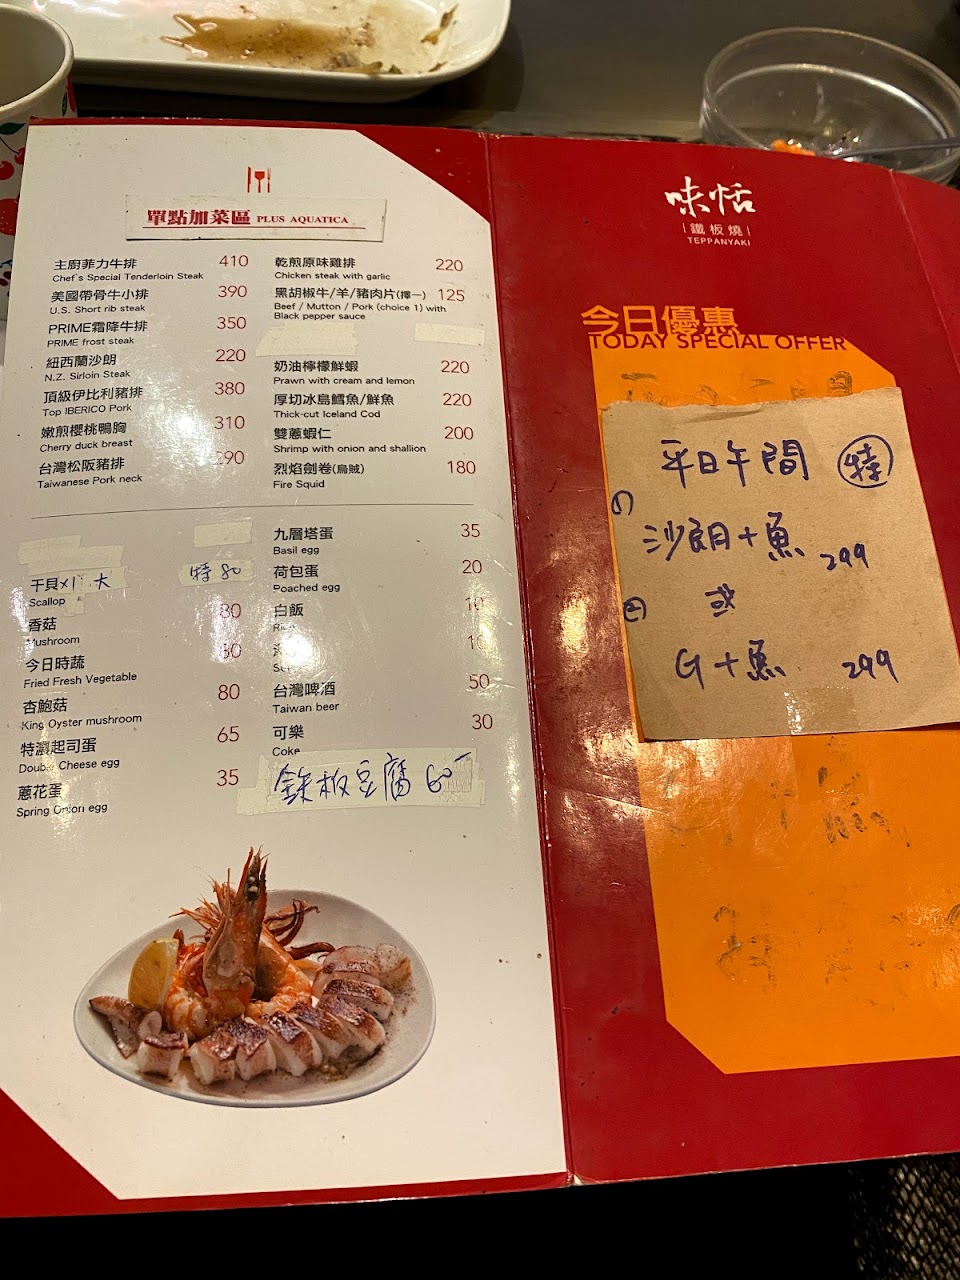 單點加菜區 PLUS AQUATICA
主廚菲力牛排 410
Chef's Special Tenderloin Steak
美國帶骨牛小排 390
U.S. Short rib steak
PRIME霜降牛排 350
PRIME frost steak
紐西蘭沙朗 220
N.Z. Sirloin Steak
頂級伊比利豬排 380
Top IBERICO Pork
嫩煎櫻桃鴨胸 310
Cherry duck breast
台灣松阪豬排 290
Taiwanese Pork neck
乾煎原味雞排 220
Chicken steak with garlic
黑胡椒牛/羊/豬肉片(擇一) 125
Beef / Mutton / Pork (choice 1) with
Black pepper sauce
奶油檸檬鮮蝦 220
Prawn with cream and lemon
厚切冰島鱈魚/鮮魚 220
Thick-cut Iceland Cod
雙蔥蝦仁 200
Shrimp with onion and shallion
烈焰劍卷(烏賊) 180
Fire Squid
干貝x1 大 特 80
Scallop
香菇 80
Mushroom
今日時蔬 80
Fried Fresh Vegetable
杏鮑菇 80
King Oyster mushroom
特濃起司蛋 65
Double Cheese egg
蔥花蛋 35
Spring Onion egg
九層塔蛋 35
Basil egg
荷包蛋 20
Poached egg
白飯 10
10
台灣啤酒 50
Taiwan beer
可樂 30
Coke
鉄板豆腐 60
味恬
鐵板燒
TEPPANYAKI
今日優惠
TODAY SPECIAL OFFER
平日午間 特
(1)
沙朗+魚 299
二 或
G+魚 299